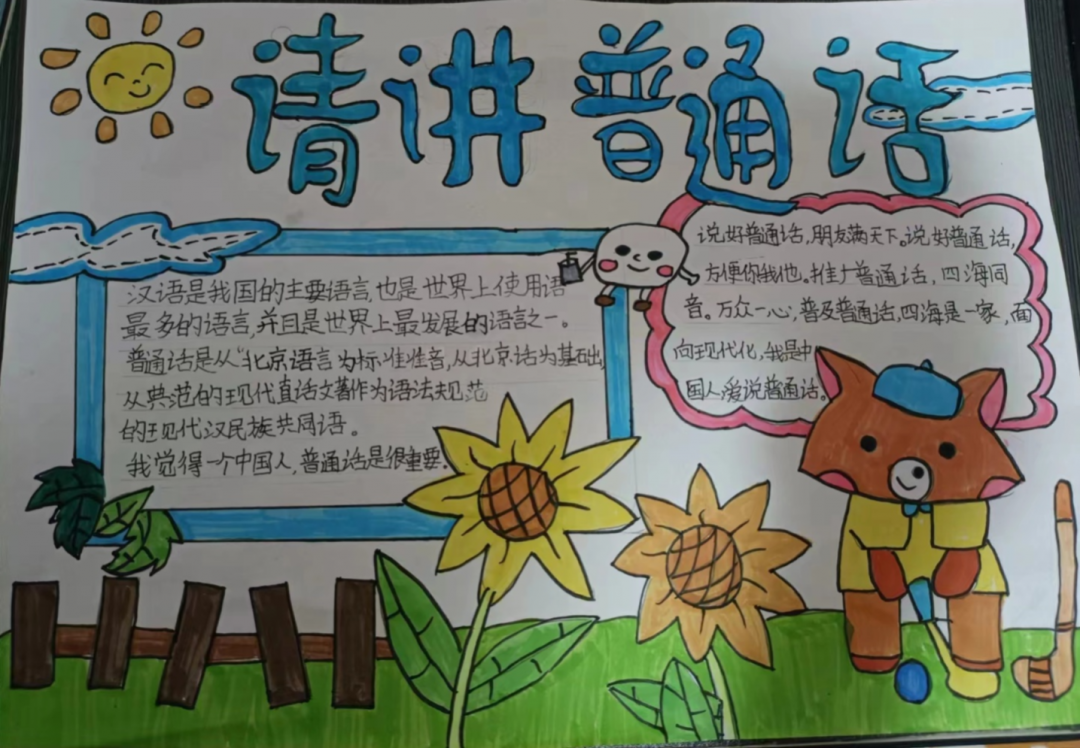 请讲普通话
汉语是我国的主要语言,也是世界上使用语
最多的语言,并且是世界上最发展的语言之一。
普通话是从“北京语言为标准准音,从北京话为基础出,
从典范的现代直话文著作为语法规范
的现代汉民族共同语。
我觉得一个中国人,普通话是很重要。
说好普通话,朋友满天下。说好普通话,
方便你我他。推广普通话,四海同
音。万众一心,普及普通话,四海是一家,面
向现代化,我是中
国人爱说普通话。